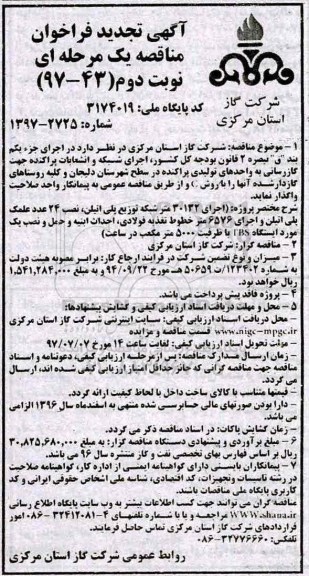 آگهی تجدید فراخوان
مناقصه یک مرحله ای
نوبت دوم(۴۳-۹۷)
شرکت گاز
استان مرکزی
کد پایگاه ملی: ۳۱۷۴۰۱۹
شماره: ۲۷۲۵-۱۳۹۷
۱ - موضوع مناقصه: شرکت گاز استان مرکزی در نظر دارد در اجرای جزء یکم
بند "و" تبصره ۲ قانون بودجه کل کشور، اجرای شبکه و انشعابات پراکنده جهت
گازرسانی به واحدهای تولیدی پراکنده در سطح شهرستان دلیجان و کلیه روستاهای
گازدار شده آنها را با روش و از طریق مناقصه عمومی به پیمانکار واجد صلاحیت
واگذار نماید.
شرح مختصر پروژه: (اجرای ۳۰۱۳۲ متر شبکه توزیع پلی اتیلن، نصب ۲۴ عدد علمک
پلی اتیلن و اجرای ۶۵۷۶ متر خطوط تغذیه فولادی، احداث ابنیه و حمل و نصب یک
مورد ایستگاه TBS با ظرفیت ۵۰۰۰ متر مکعب در ساعت)
۲ - مناقصه گزار: شرکت گاز استان مرکزی
۳ - میزان و نوع تضمین شرکت در فرایند ارجاع کار: برابر مصوبه هیئت دولت
به شماره ۱۲۳۴۰۲/ت ۵۰۶۵۹ هـ مورخ ۹۴/۰۹/۲۲ و به مبلغ ۱,۵۴۱,۲۸۴,۰۰۰
ریال خواهد بود.
- پروژه فاقد پیش پرداخت می باشد.
۵ - محل و مهلت دریافت اسناد ارزیابی کیفی و گشایش پیشنهادها:
- محل دریافت اسناد ارزیابی کیفی: سایت اینترنتی شرکت گاز استان مرکزی
www.nigc-mpgc.ir قسمت مناقصه و مزایده
- مهلت تحویل اسناد ارزیابی کیفی: لغایت ساعت ۱۴ مورخ ۹۷/۰۷/۰۷
- زمان ارسال مدارک مناقصه: پس از مرحله ارزیابی کیفی، دعوتنامه و اسناد
مناقصه جهت مناقصه گرانی که حائز حداقل امتیاز ارزیابی کیفی شده اند، ارسال
می گردد.
- قیمتها متناسب با کالای ساخت داخل با لحاظ کیفیت ارائه گردد.
- دارا بودن صورتهای مالی حسابرسی شده منتهی به اسفندماه سال ۱۳۹۶ الزامی
می باشد.
- زمان گشایش پاکات: در اسناد مناقصه ذکر می گردد.
۶ - مبلغ برآوردی و پیشنهادی دستگاه مناقصه گزار: به مبلغ ۳۰,۸۲۵,۶۸۰,۰۰۰
ریال بر اساس فهارس بهای تخصصی نفت و گاز منتشره سال ۹۶ می باشد.
۷ - پیمانکاران بایستی دارای گواهینامه ایمنی از اداره کار، گواهینامه صلاحیت
در رشته تاسیسات وتجهیزات، کد اقتصادی، شناسه ملی اشخاص حقوقی ایرانی و کد
کاربری پایگاه ملی مناقصات باشند.
مناقصه گران می توانند جهت کسب اطلاعات بیشتر به وب سایت پایگاه اطلاع رسانی
WWW.shana.ir مراجعه و یا با شماره تلفنهای ۴-۳۲۴۱۲۰۸۱ -۰۸۶ امور
قراردادهای شرکت گاز استان مرکزی تماس حاصل فرمایند.
تلفکس: ۳۲۷۷۶۶۶۰-۰۸۶
روابط عمومی شرکت گاز استان مرکزی